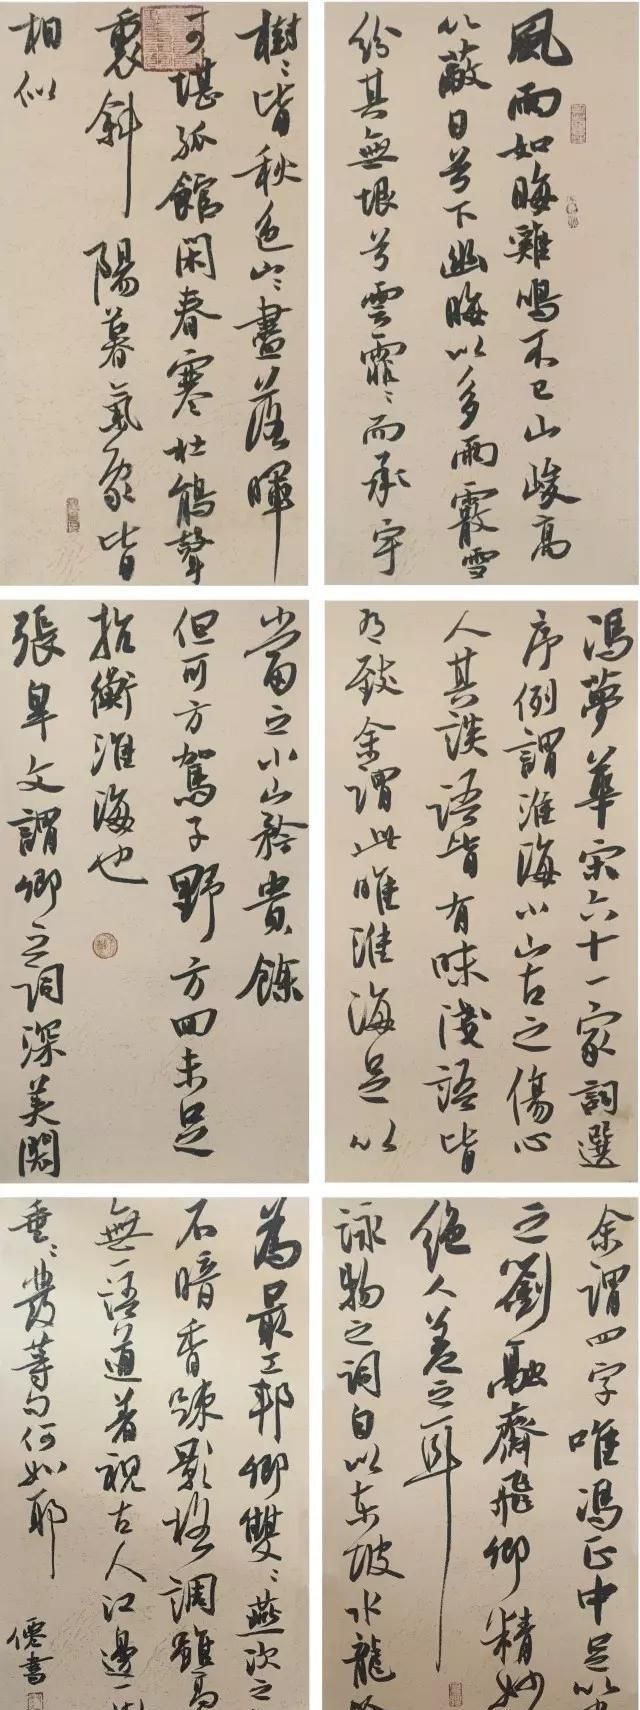 風雨如晦雞鳴不已山峻高
以蔽日兮下幽晦以多雨霰雪
紛其無垠兮雲霏〻而承宇
樹〻皆秋色山〻盡落暉
可堪孤館閑春寒杜鵑聲
裏斜陽暮氣象皆
相似
馮夢華宋六十一家詞選
序例謂淮海小山古之傷心
人其談語皆有味淺語皆
有致余謂此唯淮海足以
當之小山矜貴餘
但可方駕子野方回未足
抗衡淮海也
張皐文謂卿之詞深美閎
余謂四字唯馮正中足以
之劉融齋飛卿精妙
絶人差之耳
詠物之詞自以東坡水龍
為最工邦卿雙〻燕次之
石暗香疎影格調雖高
無一語道着視古人江邊一
垂〻發等句何如耶
僊書